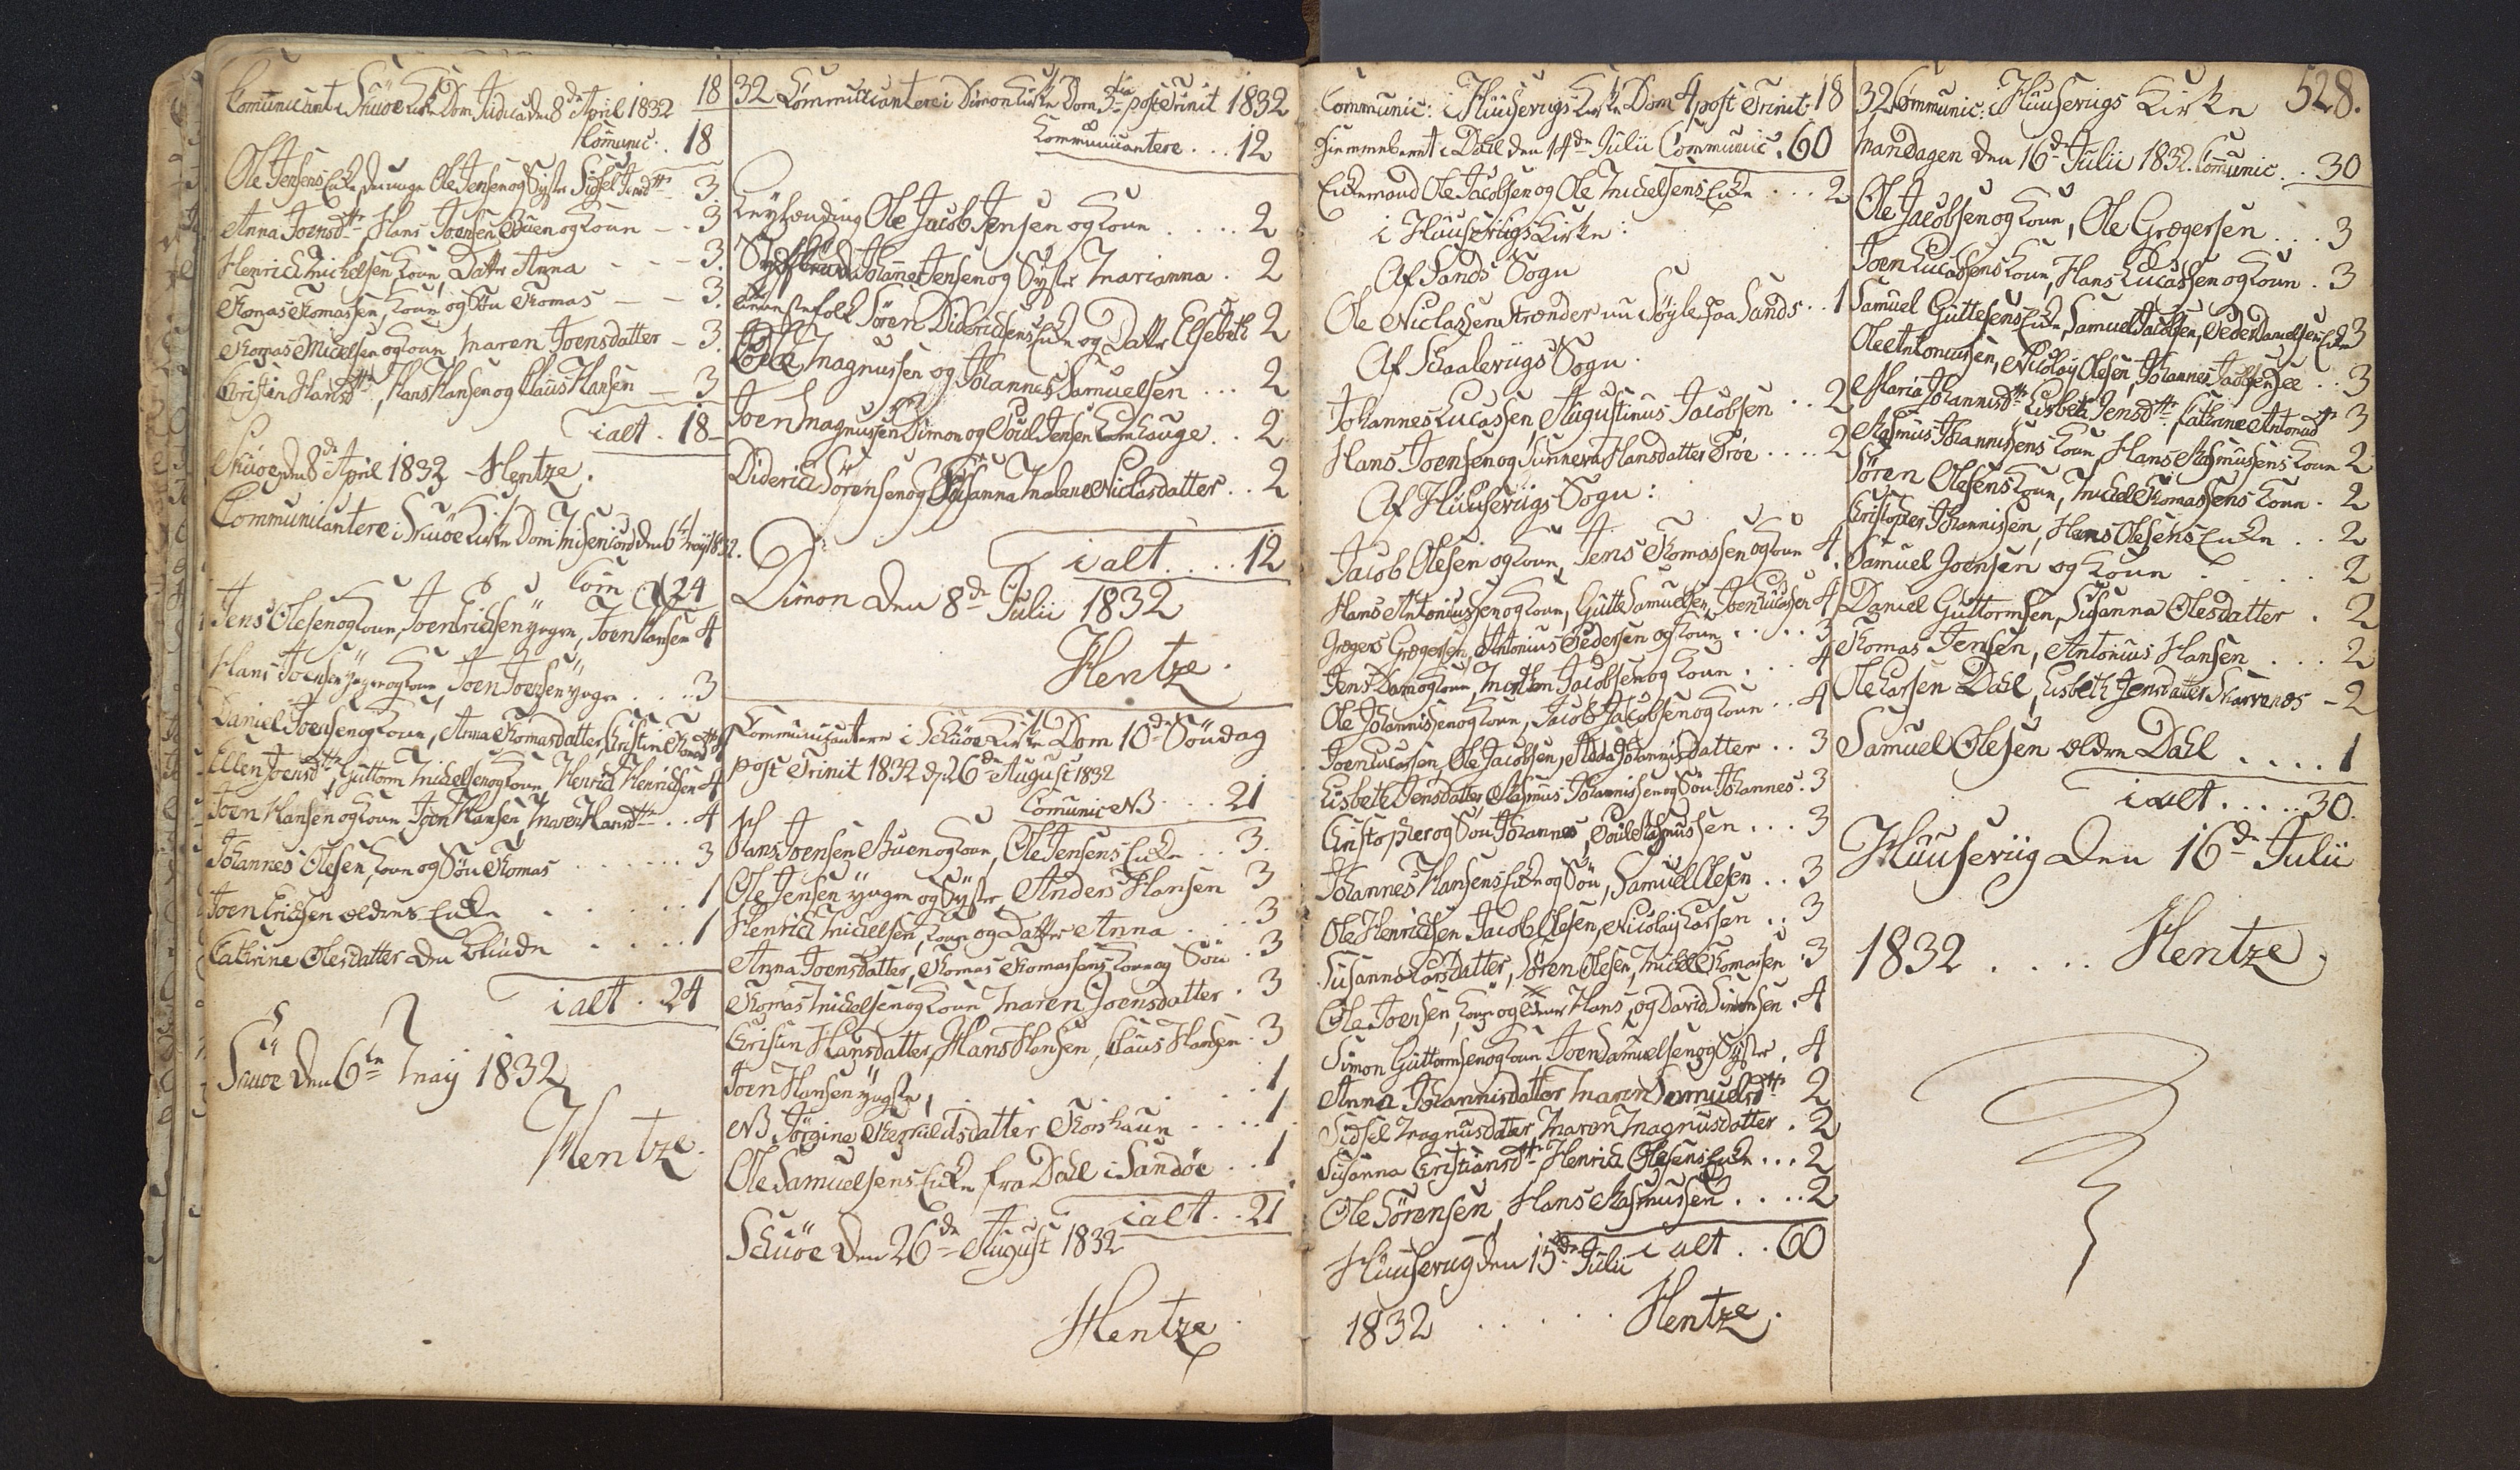 Communicant i Skuöe Kirke Dom Judica den 8de April 1832
Communic: . 18
Ole Jensens Enke, den unge Ole Jensen og Syster Sidsel Jensdtr 3.
Anna Joensdtr, Hans Joensen Buen og Kone — 3
Henrich Michelsen, Kone, Datter Anna - - - 3.
Thomas Thomassen, Kone, og Sön Thomas — - 3.
Thomas Michelsen og Kone, Maren Joensdatter - 3.
Cristin Hansdtr, Hans Hansen og Claus Hansen — 3
ialt . 18 -
Skuöe den 8de April 1832 - Hentze.
Communicantere i Skuöe Kirke Dom Misericord den 6te Maij 1832.
Com 24
Jens Olesen og Kone, Joen Erichsen yngre, Joen Hansen 4
Hans Joensen yngre og Kone, Joen Joensen yngre . . . 3
Daniel Joensen og Kone, Anna Thomasdatter, Cristin Thomasdtr
Ellen Joensdtr, Guttorm Michelsen og Kone, Henrich Henrichsen 4
Joen Hansen og Kone, Joen Hansen, Maren Hansdtr . . 4
Johannes Olesen, Kone og Sön Thomas . . . . . . 3
Joen Erichsen ældres Enke . . . . . 1
Cathrine Olesdatter den blinde . . . . 1
ialt . 24
Skuöe den 6te Maij 1832
Hentze.
18 32 Communicantere i Dimon Kirke Dom 3tia post Trinit 1832
Communicantere . . . 12
Ole Jacob Jensen og Kone . . . . 2
Johannes Jensen og Syster Marianna . 2
Sören Diderichsens Enke og Datter Elsebeth 2
Magnussen og Johannes Samuelsen . . . 2
Joen Magnussen Dimon og Poul Jensen . . 2
Diderich Sörensen og Susanna Malene Niclasdatter . . 2
ialt . . . . 12
Dimon den 8de Julii 1832
Hentze.
Communicantere i Skuöe Kirke Dom 10de Söndag
post Trinit 1832 d: 26de August 1832
Communic NB . . . 21
Hans Joensen Buen og Kone, Ole Jensens Enke . . 3.
Ole Jensen yngre og Syster, Anders Hansen 3
Henrich Michelsen, Kone og Datter Anna . . . 3
Anna Joensdatter, Thomas Thomassens Kone og Sön . 3
Thomas Michelsen og Kone, Maren Joensdatter . 3
Cristin Hansdatter, Hans Hansen, Claus Hansen . 3
Joen Hansen yngste, . . . . . . 1
NB Jörgine Thorshaun . . . . 1
Ole Samuelsens Enke fra Dahl i Sandöe . . 1
ialt . . 21
Skuöe den 26de August 1832
Hentze
Communic: i Huuseviigs Kirke Dom 4 post Trinit. 18
Hiemmeberett i Dahl den 14de Julii Communic. 60
Ole Jacobsen og Ole Michelsens Enke . . . 2
i Huuseviigs Kirke:
Af Sands Sogn
Ole Niclassen Trönder nu paa Sands . . 1
Af Skaaleviigs Sogn.
Johannes Lucassen, Augustinus Jacobsen . . 2
Hans Joensen og Sunneva Hansdatter . . . . 2
Af Huuseviigs Sogn:
Jacob Olesen og Kone, Jens Thomassen og Kone 4
Hans Antoniussen og Kone, Gutte Samuelsen, Joen Lucassen 4
Grægers Grægersen, Antonius Pedersen og Kone . . . . 3
Jens Dam og Kone, Morthen Jacobsen og Kone . . . 4
Ole Johannissen og Kone, Jacob Jacobsen og Kone . . 4
Joen Lucassen, Ole Jacobsen, Adda Johannisdatter . . 3
Lisbeth Jensdatter, Rasmus Johannissen og Sön Johannes . 3
Christopher og Sön Johannes, Poul Rasmussen . . . 3
Johannes Hansens Enke og Sön, Samuel Olesen . . 3
Ole Henrichsen, Jacob Olesen, Nicolaij Larsen . . 3
Susanna Larsdatter, Sören Olesen, Michel Thomassen . 3
Ole Joensen, Kone og Hans, og David Simonsen . 4
Simon Guttormsen og Kone, Joen Samuelsen og Syster . 4
Anna Johannisdatter, Maren Samuelsdtr 2
Sidsel Magnusdatter, Maren Magnusdatter . 2
Susanna Cristiansdtr, Henrich Olesens Enke . . . 2
Ole Sörensen, Hans Rasmussen . . . . 2
ialt . . 60
Huuseviig den 15de Julii
1832 . . . . . Hentze.
528.
32 Communic: i Huuseviigs Kirke
Mandagen den 16de Julii 1832. Communic . . 30
Ole Jacobsen og Kone, Ole Grægersen . . . 3
Joen Lucassens Kone, Hans Lucassen og Kone . 3
Samuel Guttesens Enke, Samuel Jacobsen, Peder Danielsens Enke 3
Ole Antoniussen, Nicolaij Olesen, Johannes Jacobsen . . 3
Maria Johannisdtr, Lisbeth Jensdtr, Cathrine Antonisdtr 3
Rasmus Johannissens Kone, Hans Rasmussens Kone 2
Sören Olesens Kone, Michel Thomassens Kone . 2
Christopher Johannissen, Hans Olesens Enke . . 2
Samuel Joensen og Kone . . . . . 2
Daniel Guttormsen, Susanna Olesdatter . 2
Thomas Jensen, Antonius Hansen . . . 2
Ole Larsen Dahl, Lisbeth Jensdatter Skarvenæs - 2
Samuel Olesen ældre Dahl . . . . 1
ialt . . . . . 30.
Huuseviig den 16de Julii
1832 . . . . Hentze